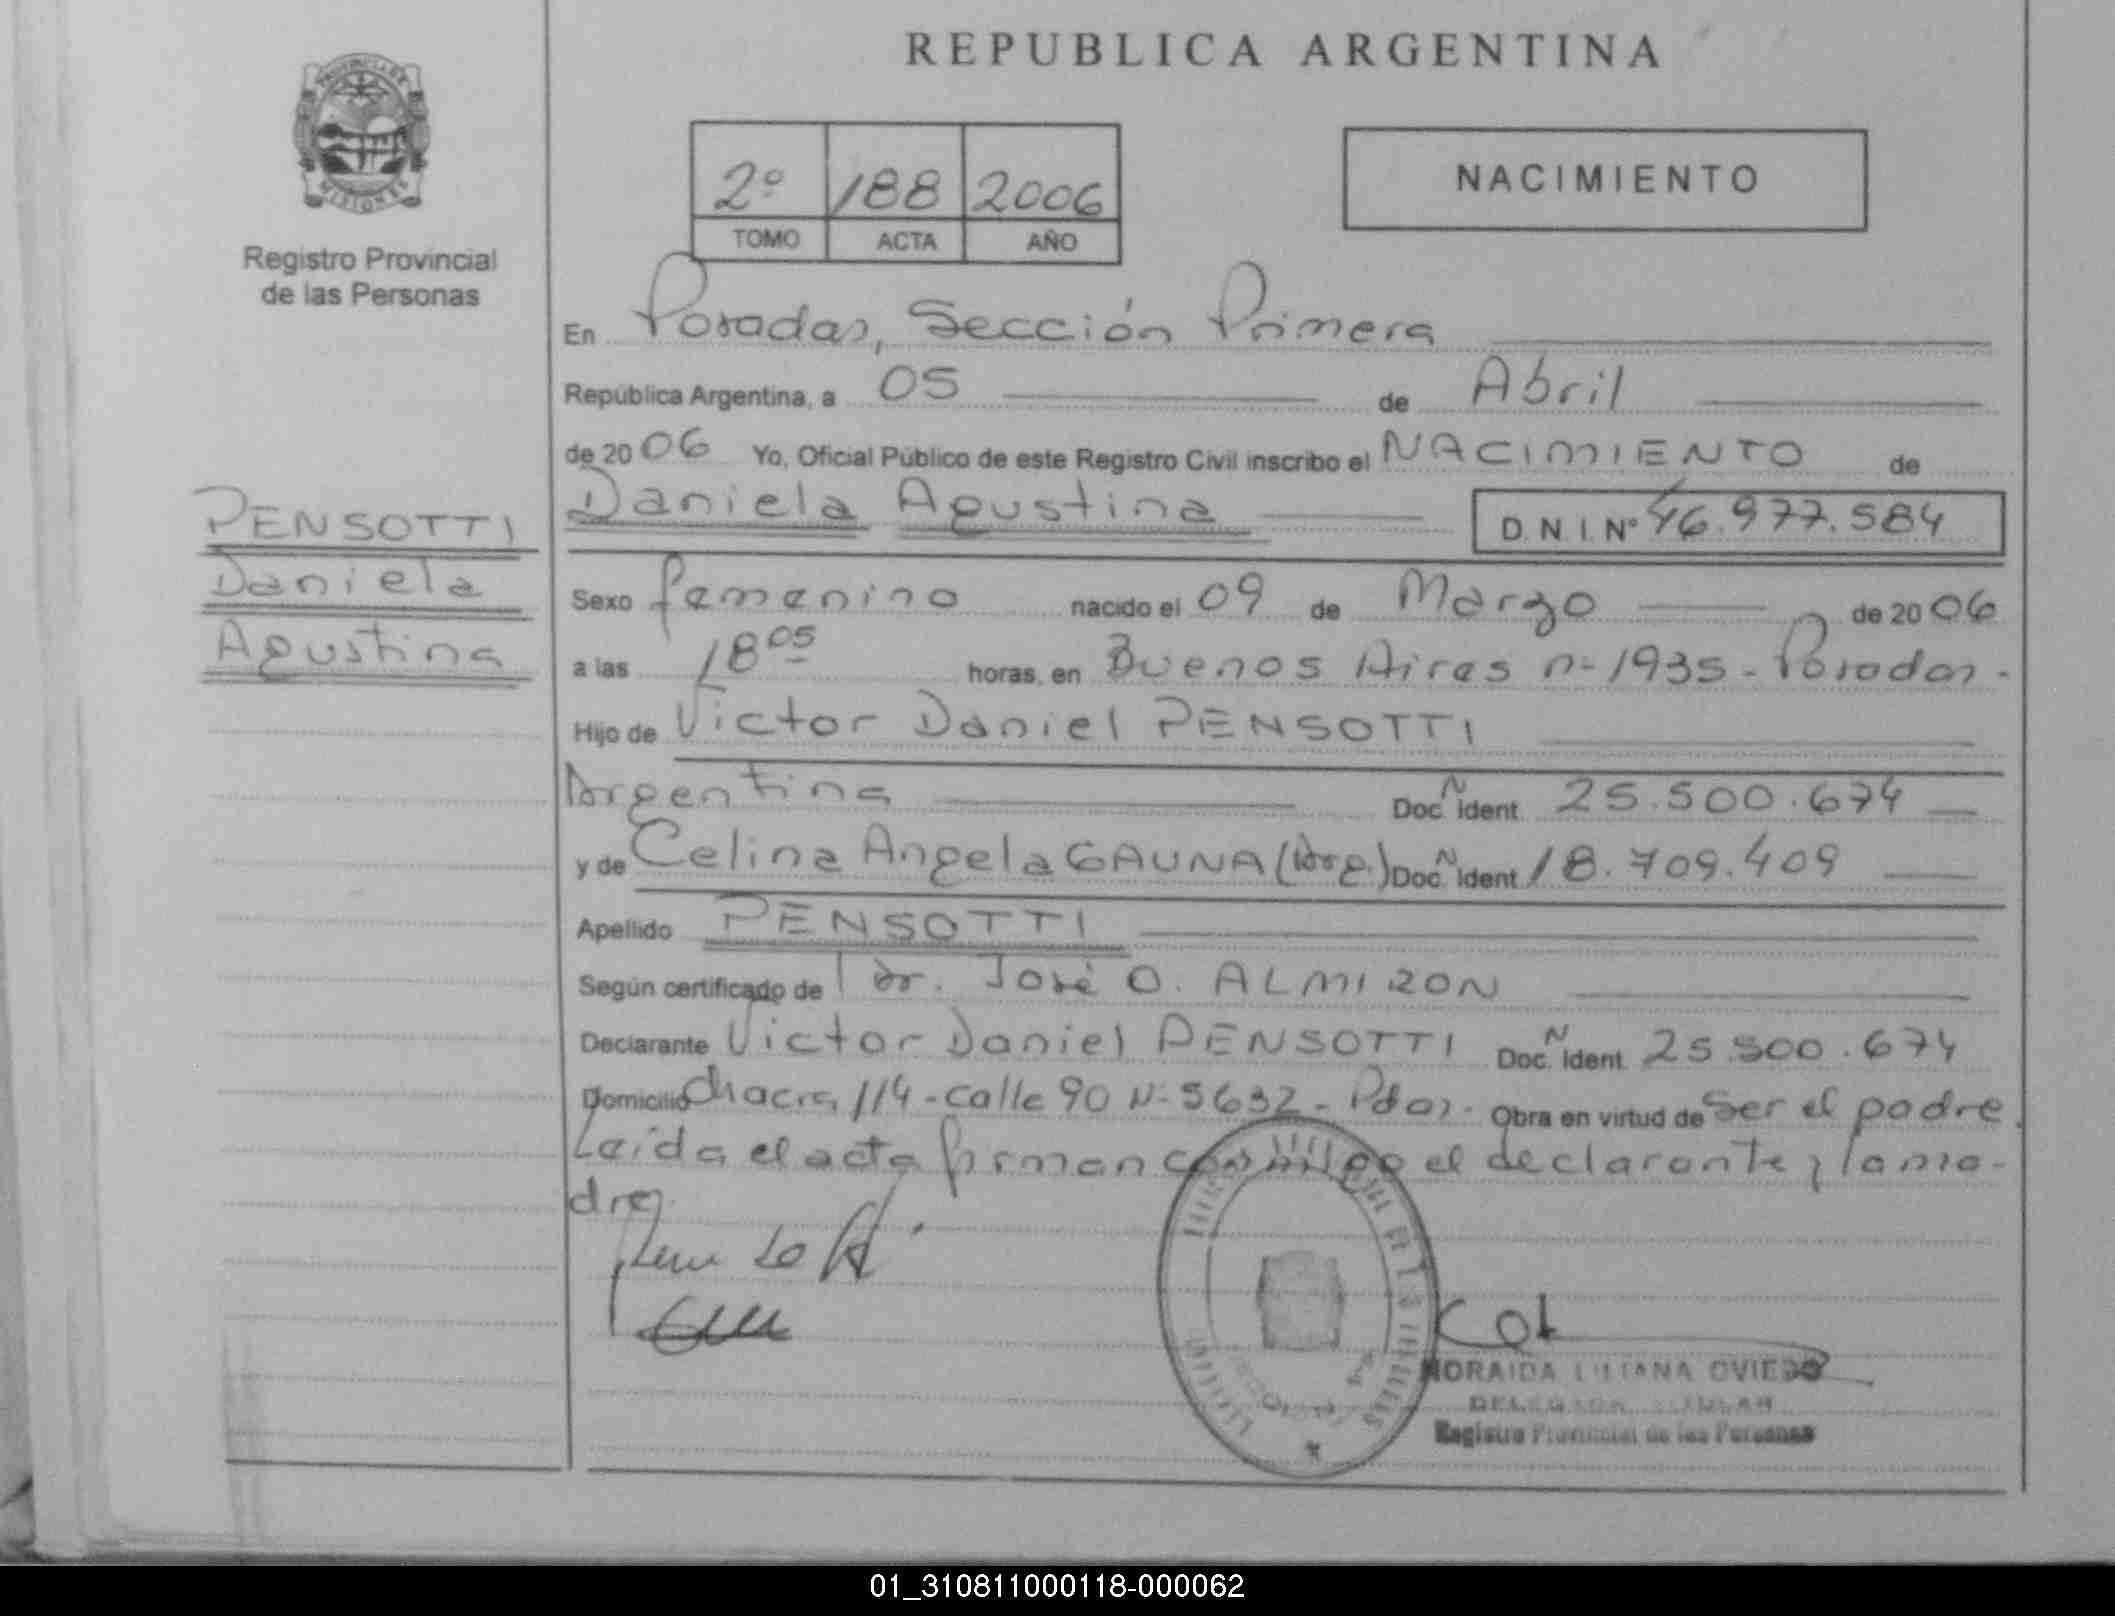 REPUBLICA ARGENTINA
PROVINCIA DE
MISIONES
Registro Provincial
de las Personas
2º 188 2006
TOMO ACTA AÑO
NACIMIENTO
En Posadas, Sección Primera
República Argentina, a 05 de Abril
de 2006 Yo, Oficial Público de este Registro Civil inscribo el NACIMIENTO de
Daniela Agustina D.N.I. Nº 46.977.584
PENSOTTI
Daniela
Agustina
Sexo femenino nacido el 09 de Marzo de 2006
a las 18 05 horas, en Buenos Aires nº 1935 - Posadas.
Hijo de Victor Daniel PENSOTTI
Argentina Doc. N Ident. 25.500.674
y de Celina Angela GAUNA (Arg.) Doc. N Ident 18.709.409
Apellido PENSOTTI
Según certificado de Dr. José O. ALMIRON
Declarante Victor Daniel PENSOTTI Doc. N Ident. 25.500.674
Domicilio Chacra 114 - calle 90 Nº 5632 - Pdas. Obra en virtud de Ser el padre.
Leida el acta firman conmigo el declarante y la ma-
dre
NORAIDA LILIANA OVIEDO
Registro Provincial de las Personas
01_310811000118-000062